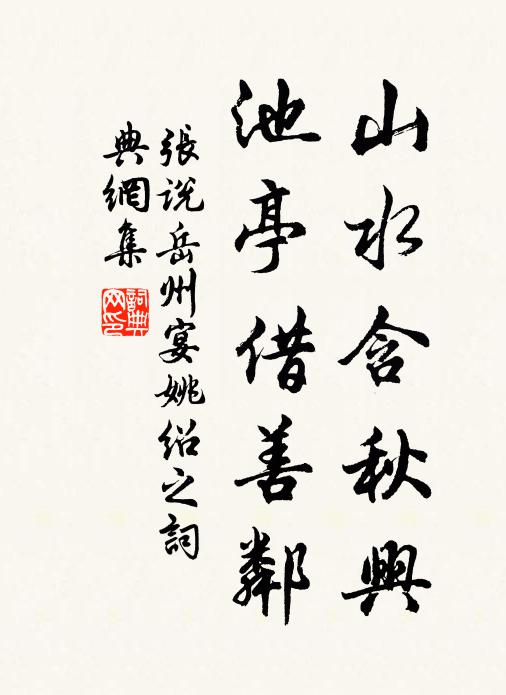 山水含秋興
池亭借善鄰
張説岳州宴姚紹之詞
典網集
詞典網印